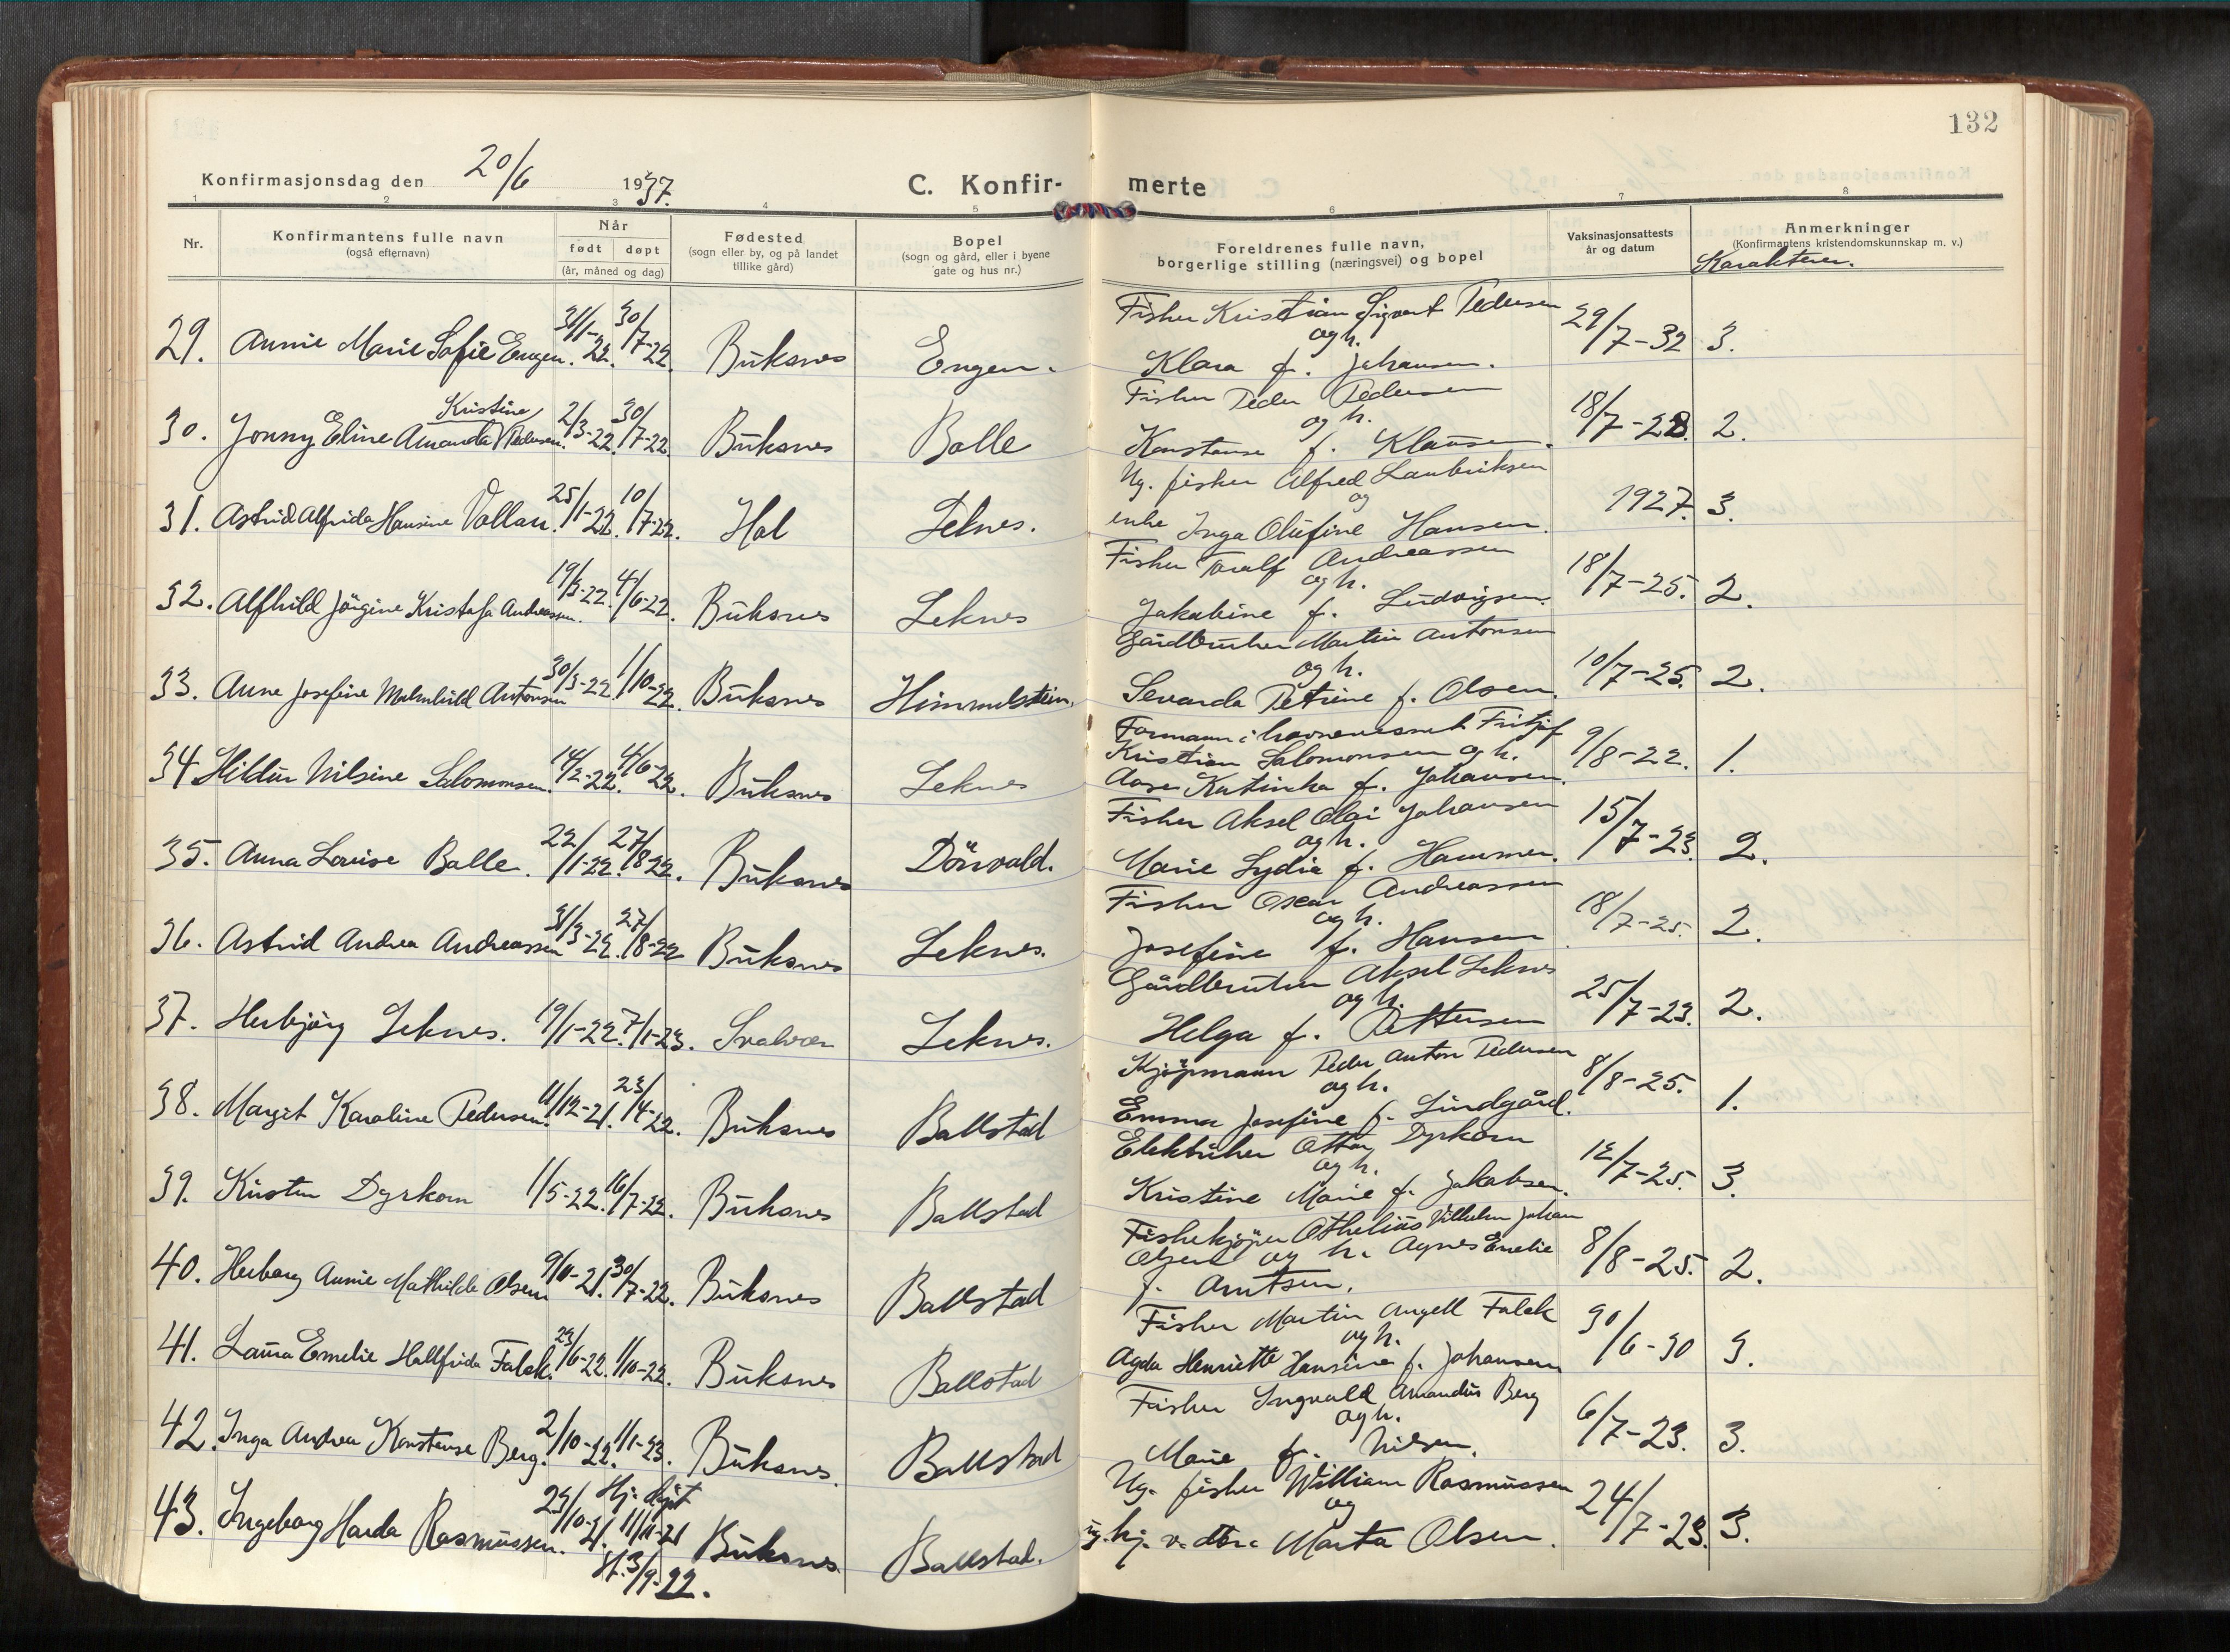 132
Konfirmasjonsdag den 20/6 1937.
C. Konfir- merte
1 2 3 4 5 6 7 8
Nr.
Konfirmantens fulle navn
(også efternavn)
Når
født døpt
(år, måned og dag)
Fødested
(sogn eller by, og på landet
tillike gård)
Bopel
(sogn og gård, eller i byene
gate og hus nr.)
Foreldrenes fulle navn,
borgerlige stilling (næringsvei) og bopel
Vaksinasjonsattests
år og datum
Anmerkninger
(Konfirmantens kristendomskunnskap m. v.)
Karakterer.
29. Annie Marie Sofie Engen. 31/1-22. 30/7-22. Buksnes Engen. Fisker Kristian Sigvart Pedersen
og h.
Klara f. Johansen. 29/7-32 3.
30. Jonny Eline Amanda Kristine Pedersen. 2/3-22. 30/7-22. Buksnes Bolle Fisker Peder Pedersen
og h.
Konstanse f. Klausen. 18/7-28. 2.
31. Astrid Alfrida Hansine Vollan. 25/1-22. 10/7-22. Hol Leknes. Ug. fisker Alfred Laubriksen
og
enke Inga Olufine Hansen. 1927. 3.
32. Alfhild Jørgine Kristofa Andreassen. 19/3-22. 4/6-22. Buksnes Leknes Fisker Toralf Andreassen
og h.
Jakobine f. Ludvigsen. 18/7-25. 2.
33. Anne Josefine Malmhild Antonsen 30/3-22. 1/10-22. Buksnes Himmelstein. Gårdbruker Martin Antonsen
og h.
Sevarda Petrine f. Olsen. 10/7-25. 2.
34 Hildur Nilsine Salomonsen. 14/2-22. 4/6-22. Buksnes Leknes Formann i havnevesnet Fritjof
Kristian Salomonsen og h.
Aase Katinka f. Johansen. 9/8-22. 1.
35. Anna Lovise Bolle. 22/1-22. 27/8-22. Buksnes Dönvold. Fisker Aksel Olai Johansen
og h.
Marie Lydia f. Hammer. 15/7-23. 2.
36. Astrid Andrea Andreassen 31/3-22. 27/8-22 Buksnes Leknes. Fisker Oscar Andreassen
og h.
Josefine f. Hansen 18/7-25. 2.
37. Herbjørg Leknes. 19/1-22. 7/1-23. Svolvær Leknes. Gårdbruker Aksel Leknes
og h.
Helga f. Pettersen 25/7-23. 2.
38. Margit Karoline Pedersen. 11/12-21. 23/4-22. Buksnes Ballstad Kjøpmann Peder Anton Pedersen
og h.
Emma Josefine f. Lindgård. 8/8-25. 1.
39. Kirsten Dyrkorn 1/5-22. 16/7-22. Buksnes Ballstad Elektriker Ottar Dyrkorn
og h.
Kristine Marie f. Jakobsen. 12/7-25. 3.
40. Herborg Annie Mathilde Olsen 9/11-21. 30/7-22. Buksnes Ballstad Fiskekjøper Othelius Vilhelm Johan
Olsen og h. Agnes Emelie
f. Arntsen. 8/8-25. 2.
41. Laura Emelie Hallfrida Falck. 23/6-22. 1/10-22. Buksnes Ballstad Fisker Martin Angell Falck
og h.
Agda Henriette Hansine f. Johansen 30/6-30 3.
42. Inga Andrea Konstanse Berg. 2/10-22. 1/1-23. Buksnes. Ballstad Fisker Ingvald Amandus Berg
og h.
Marie f. Nilsen. 6/7-23. 3.
43. Ingeborg Harda Rasmussen. 23/10-21. Hj. døpt 11/11-21 st. 3/9-22. Buksnes. Ballstad. Ug. fisker William Rasmussen
og
ug. hj. v. do. Marta Olsen. 24/7-23. 3.